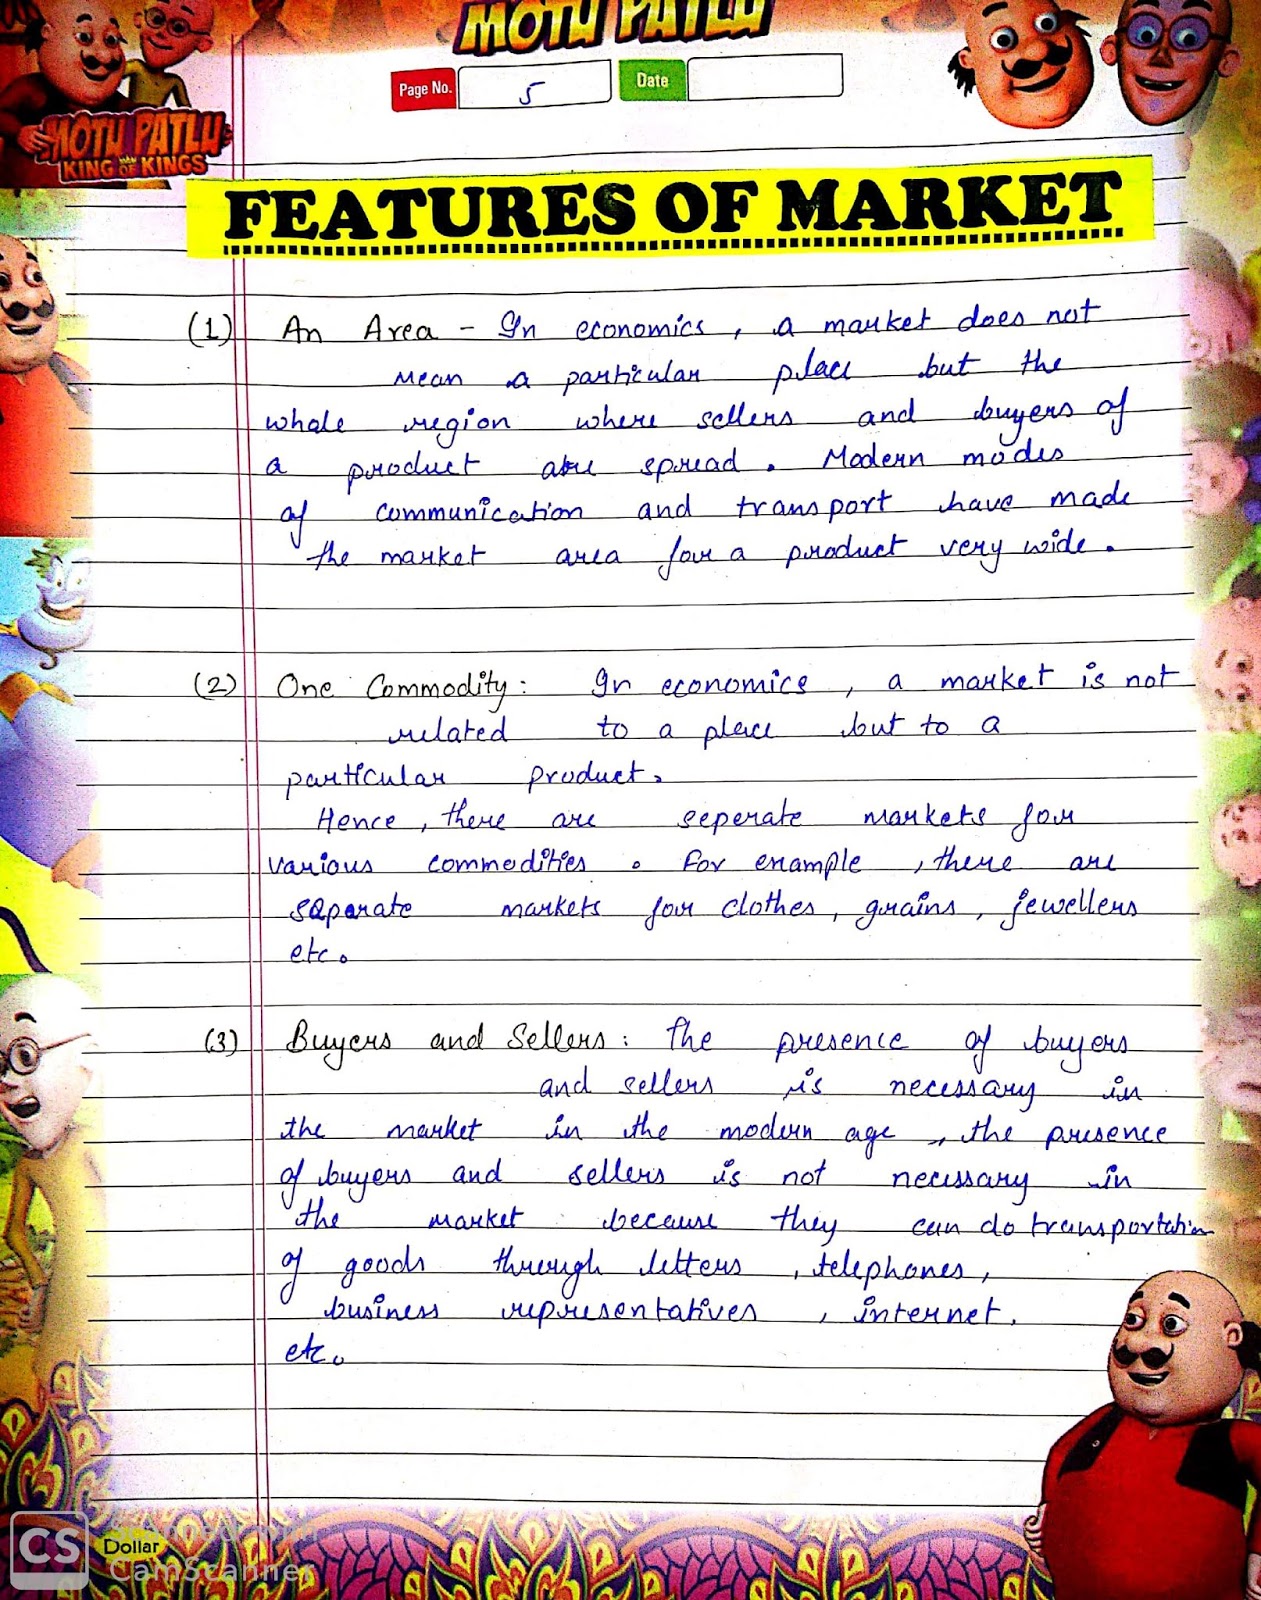 MOTU PATLU
Page No. 5 Date
MOTU PATLU
KING OF KINGS
FEATURES OF MARKET
(1) An Area - In economics, a market does not
mean a particular place but the
whole region where sellers and buyers of
a product are spread. Modern modes
of communication and transport have made
the market area for a product very wide.
(2) One Commodity: In economics, a market is not
related to a place but to a
particular product.
Hence, there are seperate markets for
various commodities. For example, there are
separate markets for clothes, grains, jewellers
etc.
(3) Buyers and Sellers: The presence of buyers
and sellers is necessary in
the market in the modern age, the presence
of buyers and sellers is not necessary in
the market because they can do transportation
of goods through letters, telephones,
business representatives, internet.
etc.
CS
Dollar
Scanned with
CamScanner